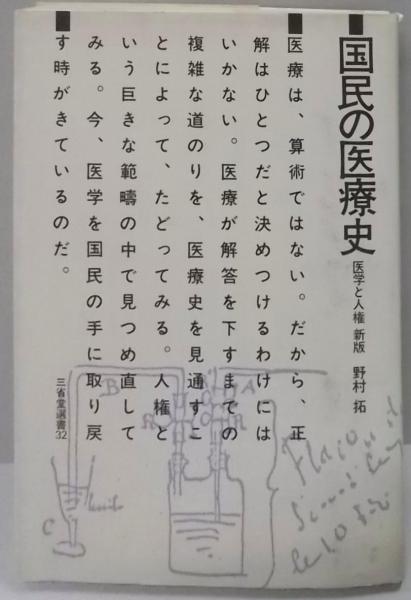 国民の医療史
医学と人権 新版 野村 拓
医療は、算術ではない。だから、正
解はひとつだと決めつけるわけには
いかない。医療が解答を下すまでの
複雑な道のりを、医療史を見通すこ
とによって、たどってみる。人権と
いう巨きな範疇の中で見つめ直して
みる。今、医学を国民の手に取り戻
す時がきているのだ。
三省堂選書32
B
A
R
C